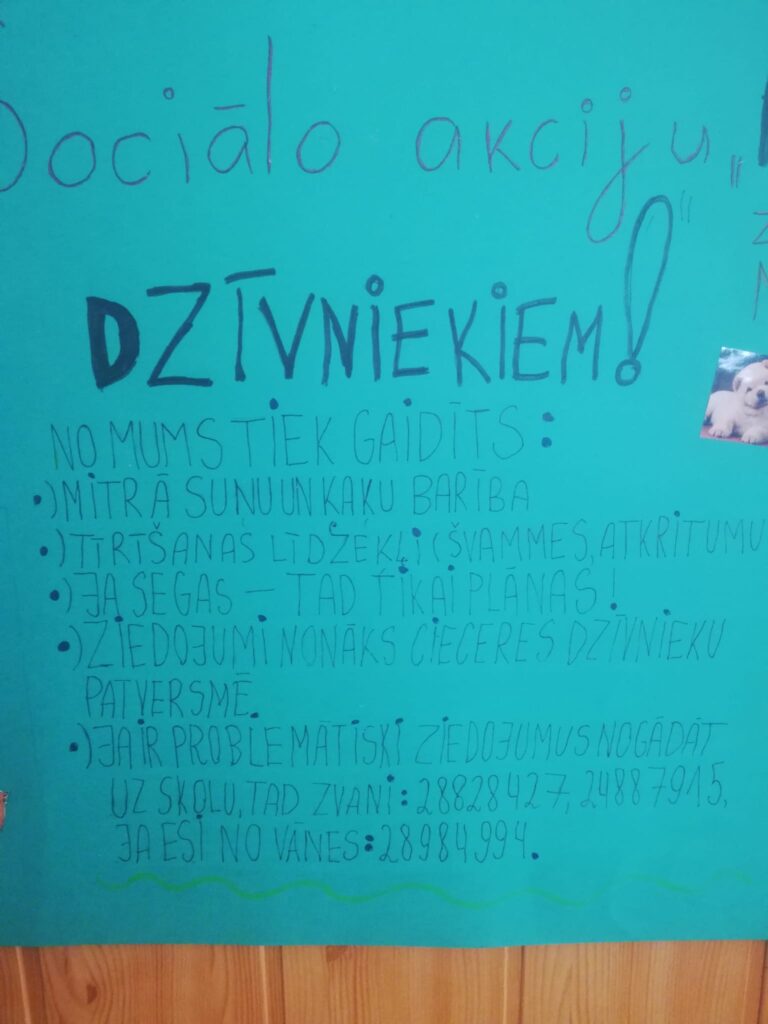 Sociālo akciju „
DZĪVNIEKIEM!"
NO MUMS TIEK GAIDĪTS:
•) MITRĀ SUŅU UN KAĶU BARĪBA
•) TĪRĪŠANAS LĪDZEKĻI (ŠVAMMES, ATKRITUMU
•) JA SEGAS – TAD TIKAI PLĀNAS!
•) ZIEDOJUMI NONĀKS CIECERES DZĪVNIEKU
PATVERSMĒ.
•) JA IR PROBLEMĀTISKI ZIEDOJUMUS NOGĀDĀT
UZ SKOLU, TAD ZVANI: 28828427, 24887915,
JA ESI NO VĀNES: 28984994.